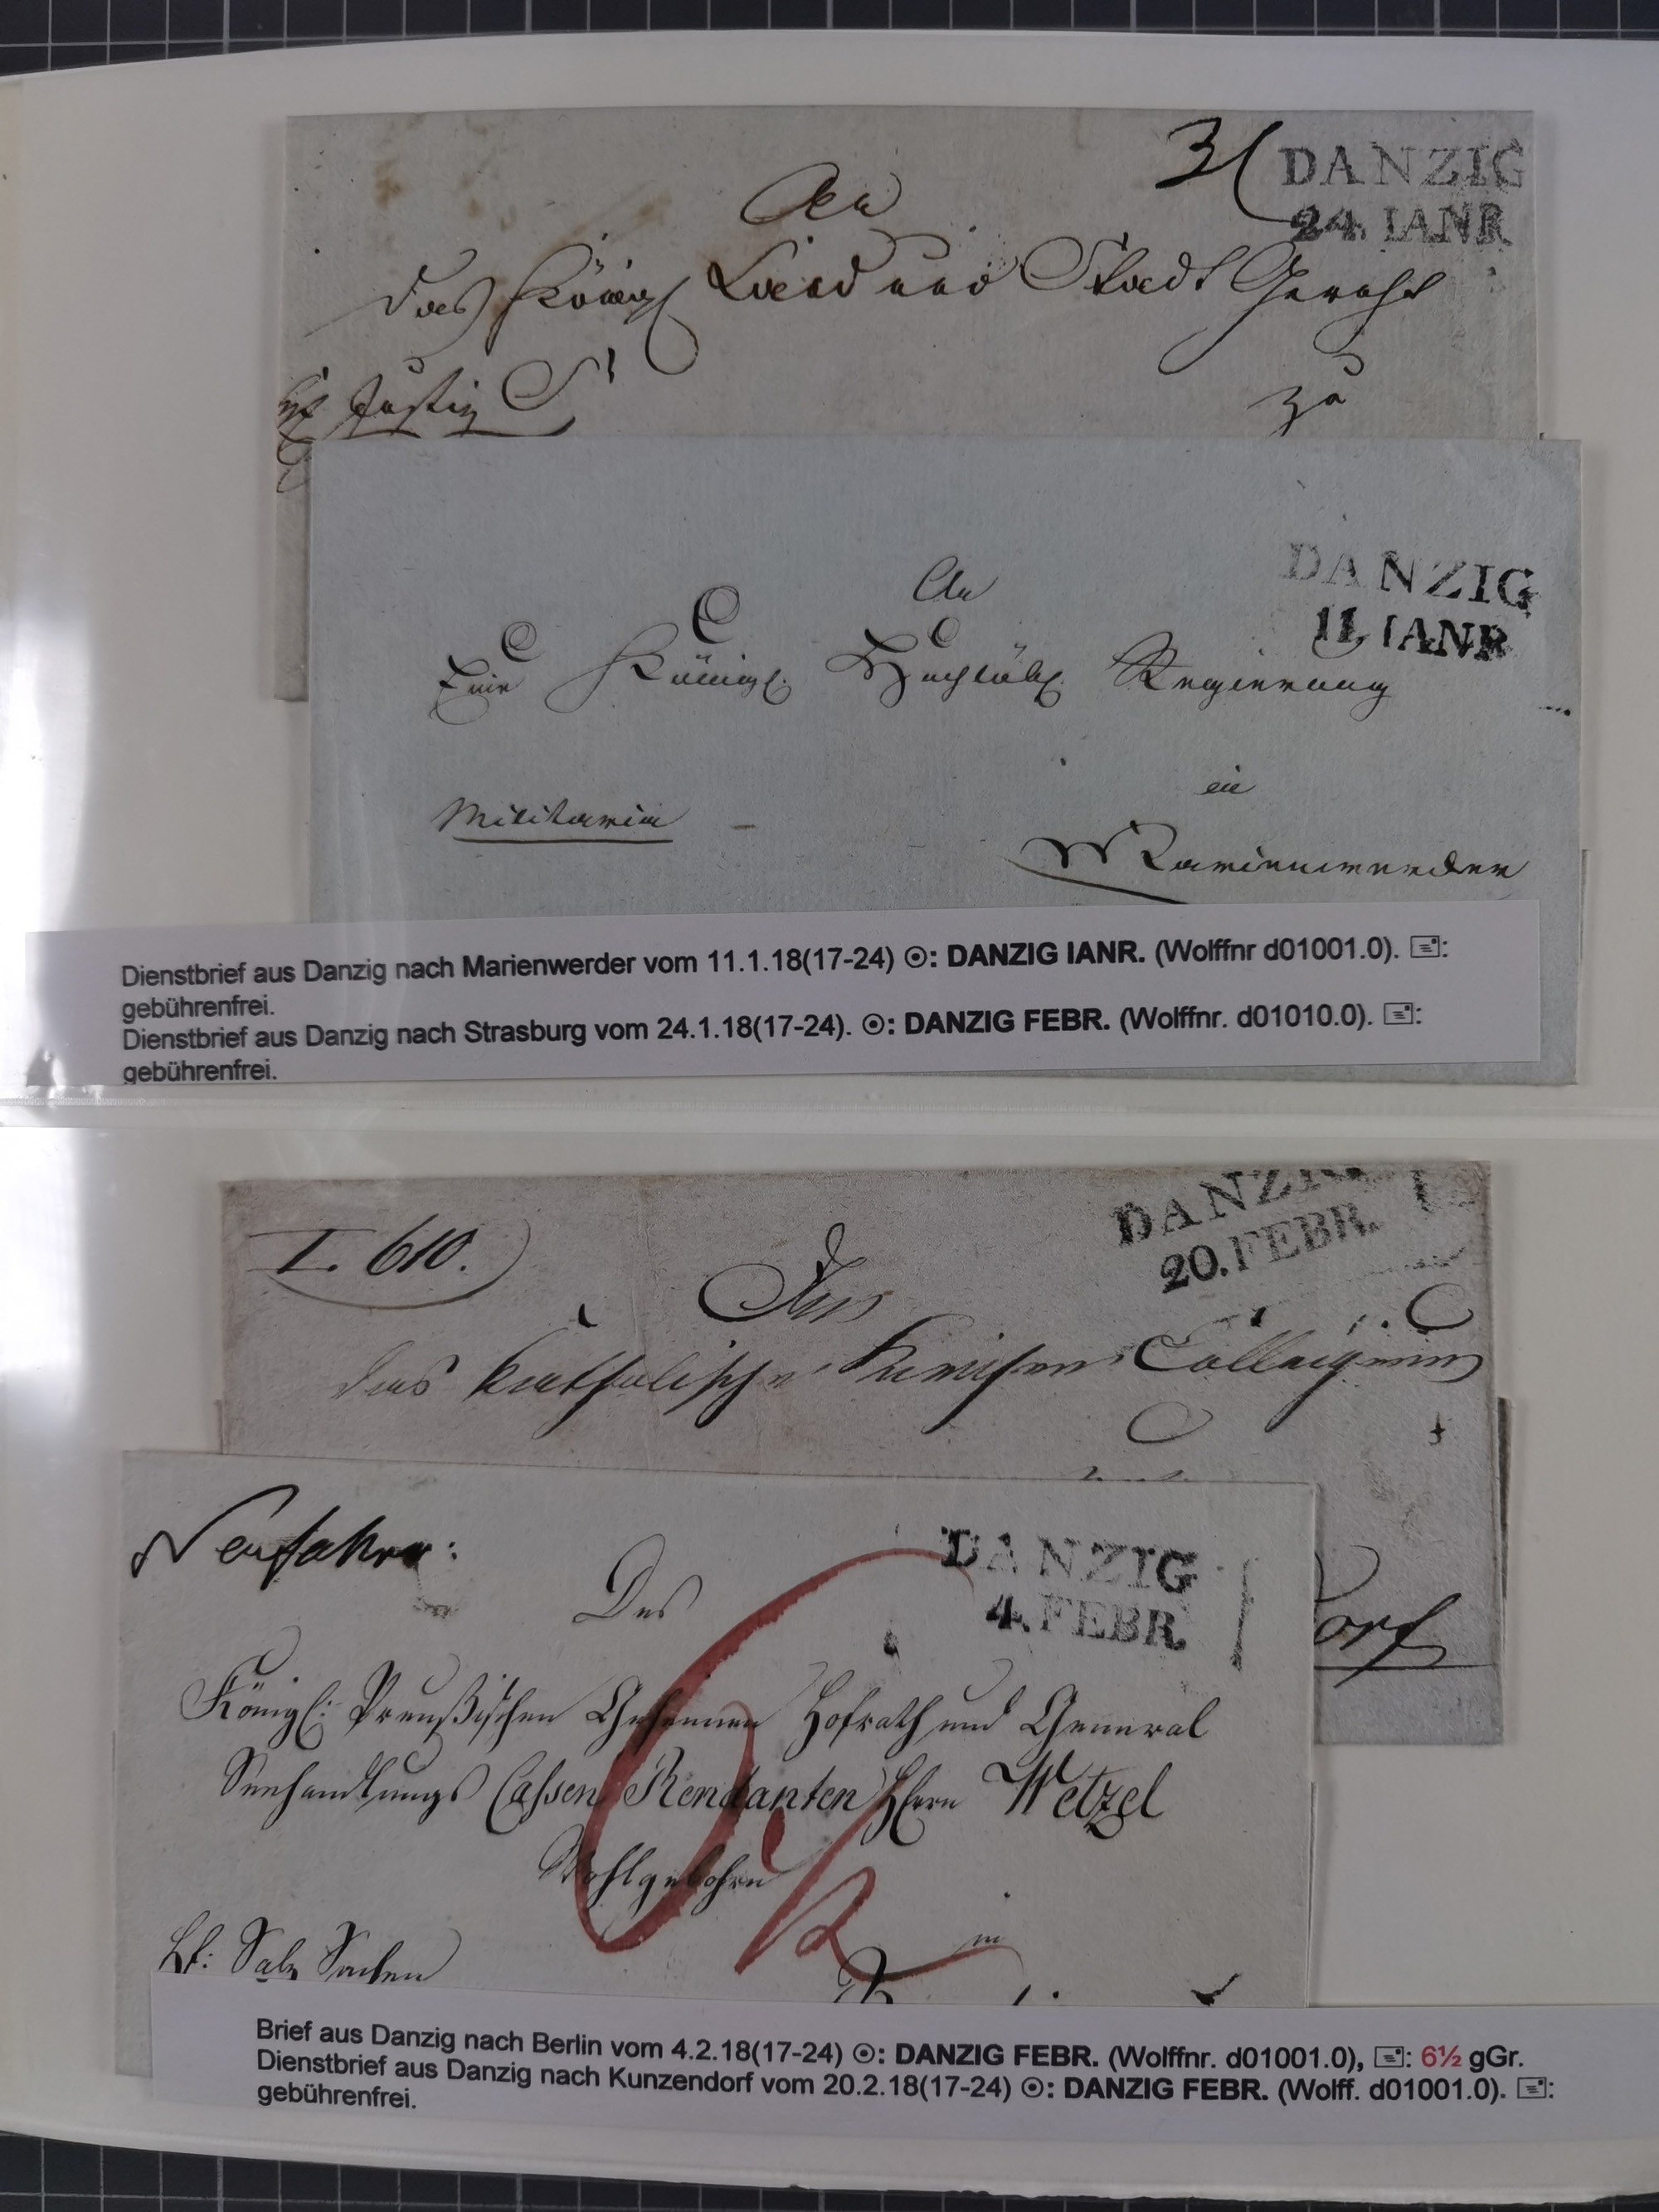 3
DANZIG
24. IANR
An
das Königl Land und Stadt Gericht
Justiz S
zu
DANZIG
11. IANR
An
Eine Königl. Hochlöbl. Regierung
in
Militaria
Marienwerder
Dienstbrief aus Danzig nach Marienwerder vom 11.1.18(17-24) ⊙: DANZIG IANR. (Wolffnr d01001.0). 🖃:
gebührenfrei.
Dienstbrief aus Danzig nach Strasburg vom 24.1.18(17-24). ⊙: DANZIG FEBR. (Wolffnr. d01010.0). 🖃:
gebührenfrei.
DANZIG
20. FEBR.
I. 610.
An
das katholische Kirchen Collegium
orf
Neufahrw:
DANZIG
4. FEBR.
Des
Königl: Preußischen Geheimen Hofrath und General
Seehandlungs Cassen Rendanten Herrn Wetzel
Wohlgebohrn
in
6½
Salz Sachen
Brief aus Danzig nach Berlin vom 4.2.18(17-24) ⊙: DANZIG FEBR. (Wolffnr. d01001.0), 🖃: 6½ gGr.
Dienstbrief aus Danzig nach Kunzendorf vom 20.2.18(17-24) ⊙: DANZIG FEBR. (Wolff. d01001.0). 🖃:
gebührenfrei.